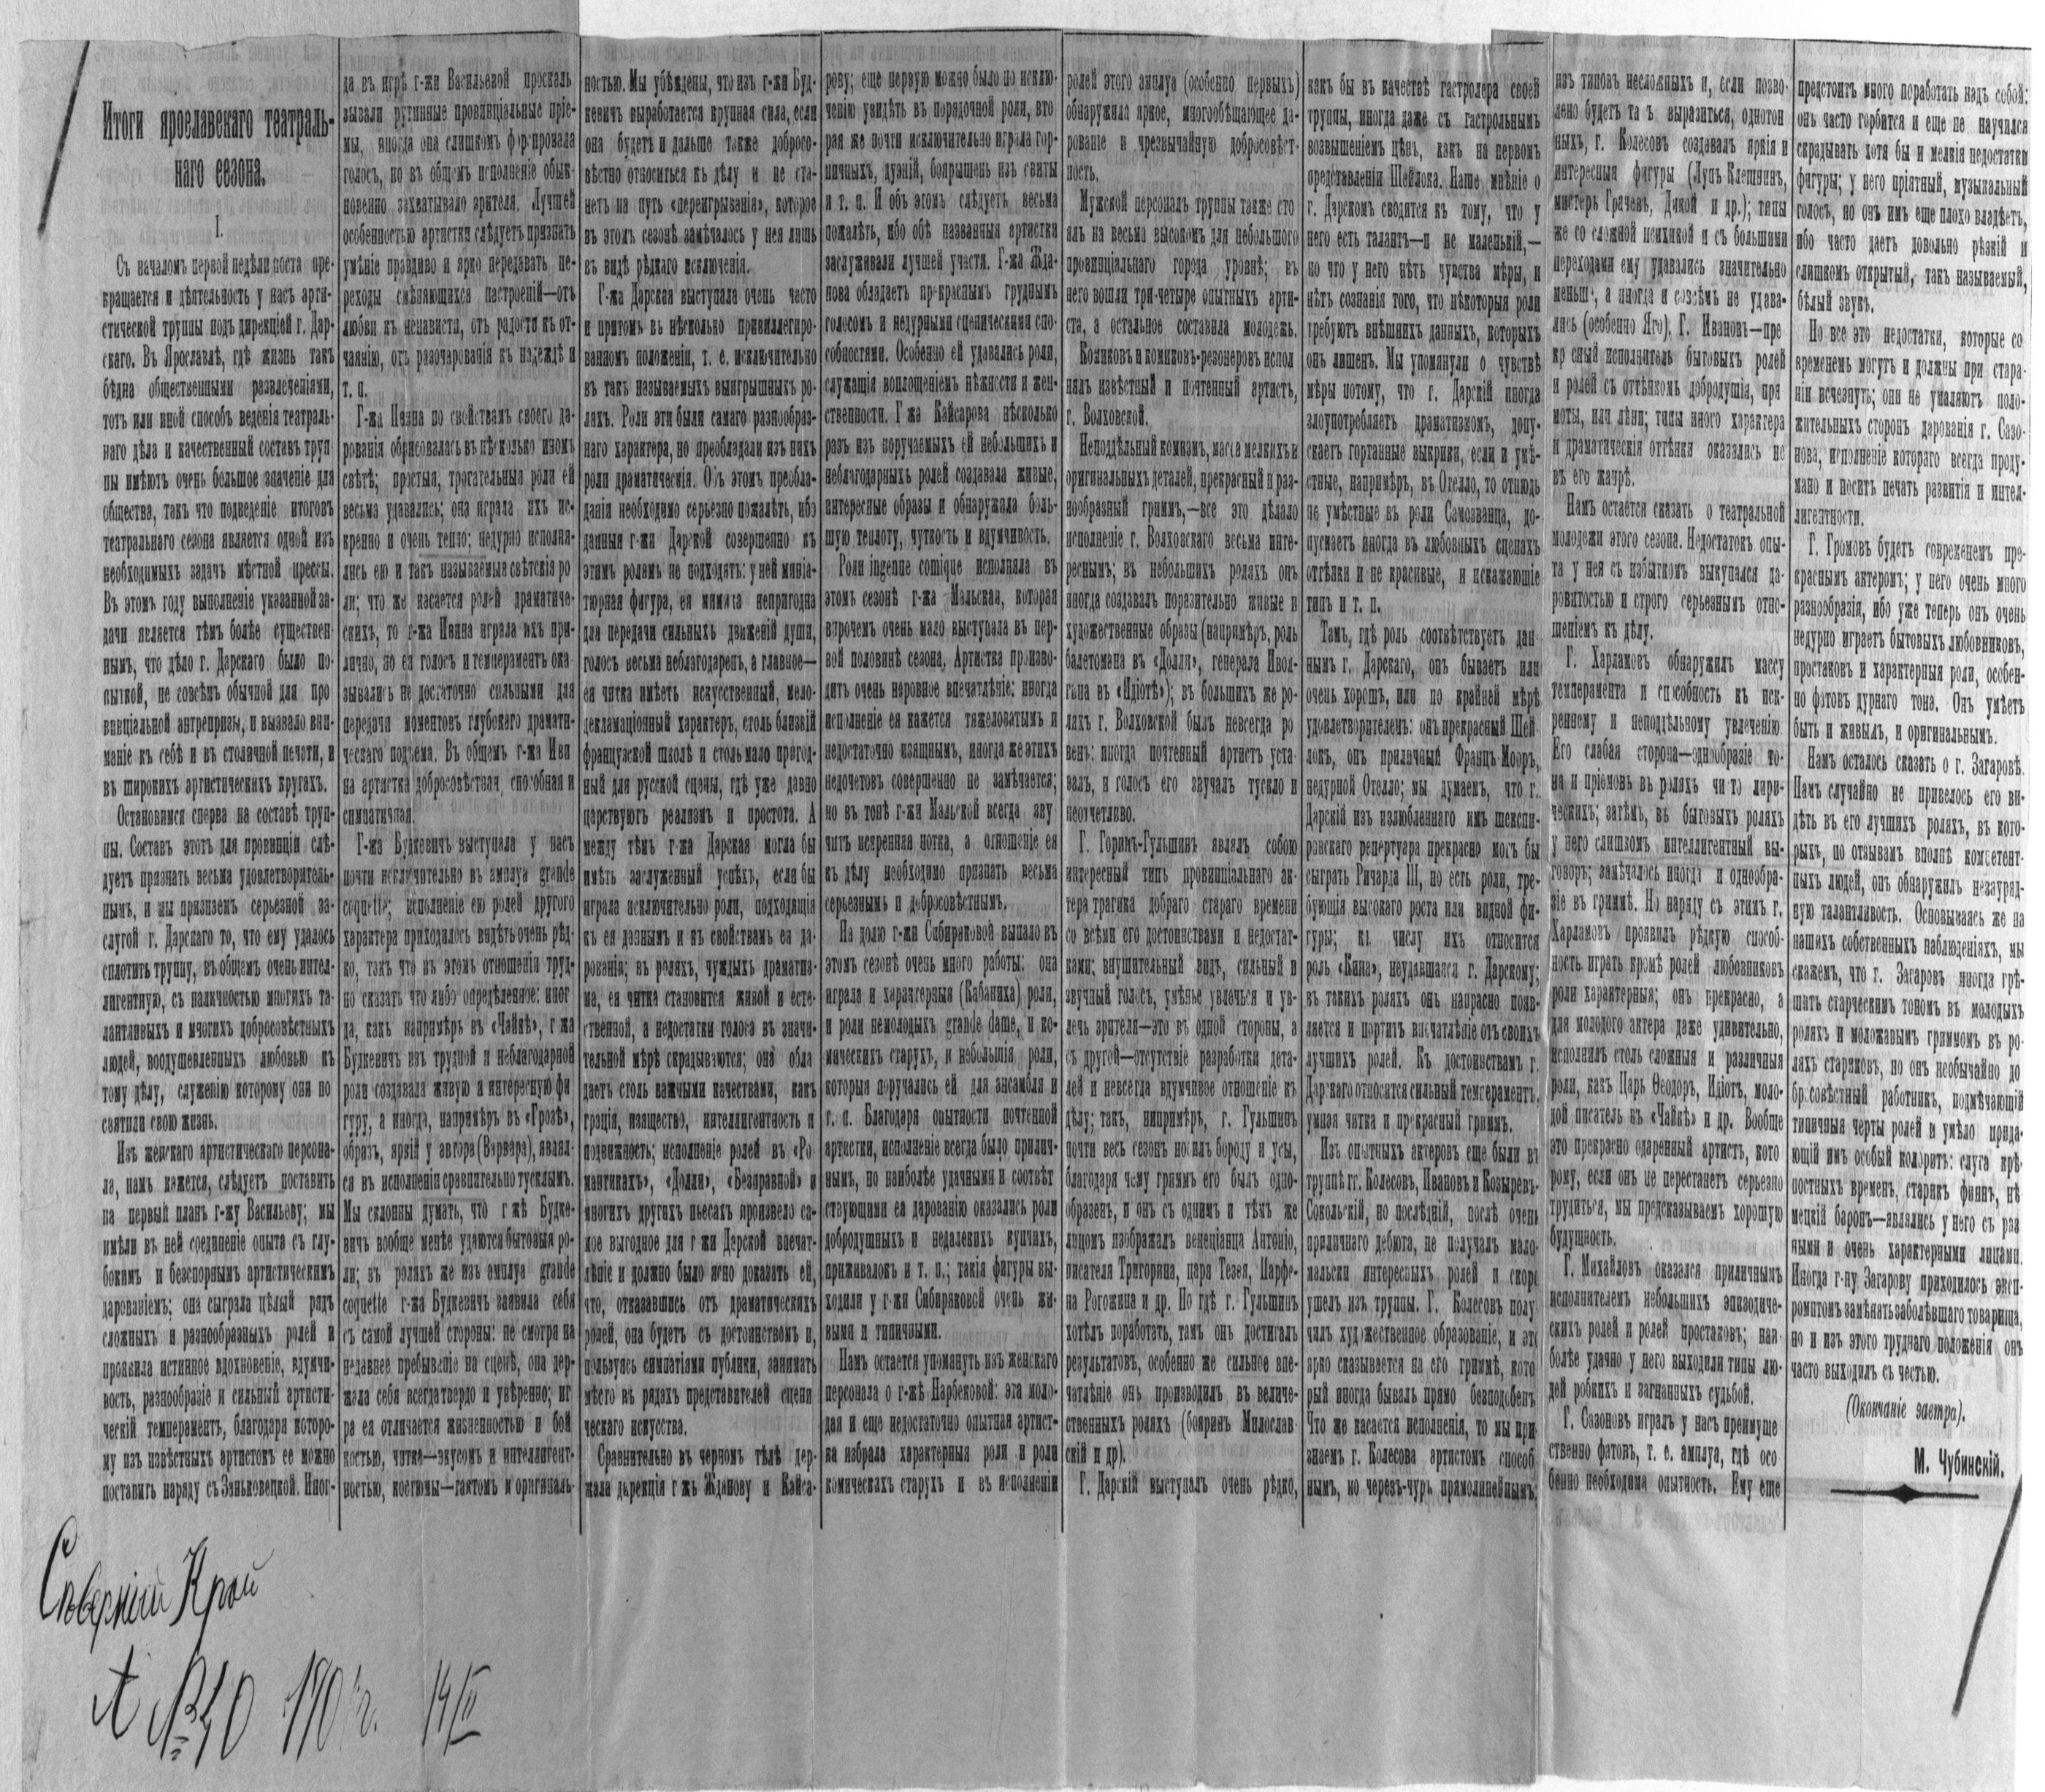 Итоги ярославскаго театраль-
наго сезона.
I.
Съ началомъ первой недѣли поста пре-
кращается и дѣятельность у насъ арти-
стической труппы подъ дирекціей г. Дар-
скаго. Въ Ярославлѣ, гдѣ жизнь такъ
бѣдна общественными развлеченіями,
тотъ или иной способъ веденія театраль-
наго дѣла и качественный составъ труп-
пы имѣютъ очень большое значеніе для
общества, такъ что подведеніе итоговъ
театральнаго сезона является одной изъ
необходимыхъ задачъ мѣстной прессы.
Въ этомъ году выполненіе указанной за-
дачи является тѣмъ болѣе существен
нымъ, что дѣло г. Дарскаго было по-
пыткой, не совсѣмъ обычной для про
винціальной антрепризы, и вызвало вни-
маніе къ себѣ и въ столичной печати, и
въ широкихъ артистическихъ кругахъ.
Остановимся сперва на составѣ труп-
пы. Составъ этотъ для провинціи слѣ-
дуетъ признать весьма удовлетворитель-
нымъ, и мы признаемъ серьезной за-
слугой г. Дарскаго то, что ему удалось
сплотить труппу, въ общемъ очень интел-
лигентную, съ наличностью многихъ та-
лантливыхъ и многихъ добросовѣстныхъ
людей, воодушевленныхъ любовью къ
тому дѣлу, служенію которому они по
святили свою жизнь.
Изъ женскаго артистическаго персона-
ла, намъ кажется, слѣдуетъ поставить
на первый планъ г-жу Васильеву; мы
имѣли въ ней соединеніе опыта съ глу-
бокимъ и безспорнымъ артистическимъ
дарованіемъ; она сыграла цѣлый рядъ
сложныхъ и разнообразныхъ ролей и
проявила истинное вдохновеніе, вдумчи-
вость, разнообразіе и сильный артисти-
ческій темпераментъ, благодаря которо-
му изъ извѣстныхъ артистокъ ее можно
поставить наряду съ Заньковецкой. Иног-
да въ игрѣ г-жи Васильевой проскаль
зывали рутинные провинціальные пріе-
мы, иногда она слишкомъ форсировала
голосъ, но въ общемъ исполненіе обык-
новенно захватывало зрителя. Лучшей
особенностью артистки слѣдуетъ признать
умѣніе правдиво и ярко передавать пе-
реходы смѣняющихся настроеній—отъ
любви къ ненависти, отъ радости къ от-
чаянію, отъ разочарованія къ надеждѣ и
т. п.
Г-жа Ивина по свойствамъ своего да-
рованія обрисовалась въ нѣсколько иномъ
свѣтѣ; простыя, трогательныя роли ей
весьма удавались; она играла ихъ ис-
кренно и очень тепло; недурно исполня-
лись ею и такъ называемыя свѣтскія ро
ли; что же касается ролей драматиче-
скихъ, то г-жа Ивина играла ихъ при-
лично, но ея голосъ и темпераментъ ока
зывались не достаточно сильными для
передачи моментовъ глубокаго драмати-
ческаго подъема. Въ общемъ г-жа Иви
на артистка добросовѣстная, способная и
симпатичная.
Г-жа Будкевичъ выступала у насъ
почти исключительно въ амплуа grande
coquette; исполненіе ею ролей другого
характера приходилось видѣть очень рѣд-
ко, такъ что въ этомъ отношеніи труд-
но сказать что либо опредѣленное: иног
да, какъ напримѣръ въ «Чайкѣ», г жа
Будкевичъ изъ трудной и неблагодарной
роли создавала живую и интересную фи
гуру, а иногда, напримѣръ въ «Грозѣ»,
образъ, яркій у автора (Варвара), являл-
ся въ исполненіи сравнительно тусклымъ.
Мы склонны думать, что г жѣ Будке-
вичъ вообще менѣе удаются бытовыя ро-
ли; въ роляхъ же изъ амплуа grande
coquette г-жа Будкевичъ заявила себя
съ самой лучшей стороны: не смотря на
недавнее пребываніе на сценѣ, она дер-
жала себя всегда твердо и увѣренно; иг
ра ея отличается жизненностью и бой
костью, читка—вкусомъ и интеллигент-
ностью, костюмы—тактомъ и оригиналь-
ностью. Мы убѣждены, что изъ г-жи Буд-
кевичъ выработается крупная сила, если
она будетъ и дальше также добросо-
вѣстно относиться къ дѣлу и не ста-
нетъ на путь «переигрыванія», которое
въ этомъ сезонѣ замѣчалось у нея лишь
въ видѣ рѣдкаго исключенія.
Г-жа Дарская выступала очень часто
и притомъ въ нѣсколько привиллегиро-
ванномъ положеніи, т. е. исключительно
въ такъ называемыхъ выигрышныхъ ро-
ляхъ. Роли эти были самаго разнообраз-
наго характера, но преобладали изъ нихъ
роли драматическія. Объ этомъ преобла-
даніи необходимо серьезно пожалѣть, ибо
данныя г-жи Дарской совершенно къ
этимъ ролямъ не подходятъ: у ней миніа-
тюрная фигура, ея мимика непригодна
для передачи сильныхъ движеній души,
голосъ весьма неблагодаренъ, а главное—
ея читка имѣетъ искусственный, мело-
декламаціонный характеръ, столь близкій
французской школѣ и столь мало пригод-
ный для русской сцены, гдѣ уже давно
царствуютъ реализмъ и простота. А
между тѣмъ г-жа Дарская могла бы
имѣть заслуженный успѣхъ, если бы
играла исключительно роли, подходящія
къ ея даннымъ и къ свойствамъ ея да-
рованія; въ роляхъ, чуждыхъ драматиз-
ма, ея читка становится живой и есте-
ственной, а недостатки голоса въ значи-
тельной мѣрѣ скрадываются; она обла
даетъ столь важными качествами, какъ
грація, изящество, интеллигентность и
подвижность; исполненіе ролей въ «Ро
мантикахъ», «Долли», «Безправной» и
многихъ другихъ пьесахъ произвело са-
мое выгодное для г жи Дарской впечат-
лѣніе и должно было ясно доказать ей,
что, отказавшись отъ драматическихъ
ролей, она будетъ съ достоинствомъ и,
пользуясь симпатіями публики, занимать
мѣсто въ рядахъ представителей сцени
ческаго искусства.
Сравнительно въ черномъ тѣлѣ дер-
жала дирекція г жъ Жданову и Кайса-
рову; еще первую можно было по исклю-
ченію увидѣть въ порядочной роли, вто
рая же почти исключительно играла гор-
ничныхъ, дуэній, боярышень изъ свиты
и т. п. И объ этомъ слѣдуетъ весьма
пожалѣть, ибо обѣ названныя артистки
заслуживали лучшей участи. Г-жа Жда-
нова обладаетъ прекраснымъ груднымъ
голосомъ и недурными сценическими спо-
собностями. Особенно ей удавались роли,
служащія воплощеніемъ нѣжности и жен-
ственности. Г жа Кайсарова нѣсколько
разъ изъ поручаемыхъ ей небольшихъ и
неблагодарныхъ ролей создавала живые,
интересные образы и обнаружила боль-
шую теплоту, чуткость и вдумчивость.
Роли ingenue comique исполняла въ
этомъ сезонѣ г-жа Мальская, которая
впрочемъ очень мало выступала въ пер-
вой половинѣ сезона. Артистка произво-
дитъ очень неровное впечатлѣніе: иногда
исполненіе ея кажется тяжеловатымъ и
недостаточно изящнымъ, иногда же этихъ
недочетовъ совершенно не замѣчается;
но въ тонѣ г-жи Мальской всегда зву
читъ искренняя нотка, а отношеніе ея
къ дѣлу необходимо признать весьма
серьезнымъ и добросовѣстнымъ.
На долю г-жи Сибиряковой выпало въ
этомъ сезонѣ очень много работы: она
играла и характерныя (Кабаниха) роли,
и роли немолодыхъ grande dame, и ко-
мическихъ старухъ, и небольшія роли,
которыя поручались ей для ансамбля и
т. п. Благодаря опытности почтенной
артистки, исполненіе всегда было прилич-
нымъ, но наиболѣе удачными и соотвѣт
ствующими ея дарованію оказались роли
добродушныхъ и недалекихъ купчихъ,
приживалокъ и т. п.; такія фигуры вы-
ходили у г-жи Сибиряковой очень жи-
выми и типичными.
Намъ остается упомянуть изъ женскаго
персонала о г-жѣ Нарбековой: эта моло-
дая и еще недостаточно опытная артист-
ка избрала характерныя роли и роли
комическихъ старухъ и въ исполненіи
ролей этого амплуа (особенно первыхъ)
обнаружила яркое, многообѣщающее да-
рованіе и чрезвычайную добросовѣст-
ность.
Мужской персоналъ труппы также сто
ялъ на весьма высокомъ для небольшого
провинціальнаго города уровнѣ; въ
него вошли три-четыре опытныхъ арти-
ста, а остальное составила молодежь.
Комиковъ и комиковъ-резонеровъ испол
нялъ извѣстный и почтенный артистъ,
г. Волховской.
Неподдѣльный комизмъ, масса мелкихъ и
оригинальныхъ деталей, прекрасный и раз-
нообразный гримъ,—все это дѣлало
исполненіе г. Волховскаго весьма инте-
реснымъ; въ небольшихъ роляхъ онъ
иногда создавалъ поразительно живые и
художественные образы (напримѣръ, роль
балетомана въ «Долли», генерала Ивол-
гина въ «Идіотѣ»); въ большихъ же ро-
ляхъ г. Волховской былъ не всегда ро
венъ: иногда почтенный артистъ уста-
валъ, и голосъ его звучалъ тускло и
неотчетливо.
Г. Горинъ-Гульшинъ являлъ собою
интересный типъ провинціальнаго ак-
тера трагика добраго стараго времени
со всѣми его достоинствами и недостат-
ками: внушительный видъ, сильный и
звучный голосъ, умѣнье увлечься и ув-
лечь зрителя—это въ одной стороны, а
съ другой—отсутствіе разработки дета-
лей и не всегда вдумчивое отношеніе къ
дѣлу; такъ, напримѣръ, г. Гульшинъ
почти весь сезонъ носилъ бороду и усы,
благодаря чему гримъ его былъ одно-
образенъ, и онъ съ однимъ и тѣмъ же
лицомъ изображалъ венеціанца Антоніо,
писателя Тригорина, царя Тезея, Парфе-
на Рогожина и др. Но гдѣ г. Гульшинъ
хотѣлъ поработать, тамъ онъ достигалъ
результатовъ, особенно же сильное впе-
чатлѣніе онъ производилъ въ величе-
ственныхъ роляхъ (бояринъ Милослав-
скій и др).
Г. Дарскій выступалъ очень рѣдко,
какъ бы въ качествѣ гастролера своей
труппы, иногда даже съ гастрольнымъ
возвышеніемъ цѣнъ, какъ на первомъ
представленіи Шейлока. Наше мнѣніе о
г. Дарскомъ сводится къ тому, что у
него есть талантъ—и не маленькій,—
но что у него нѣтъ чувства мѣры, и
нѣтъ сознанія того, что нѣкоторыя роли
требуютъ внѣшнихъ данныхъ, которыхъ
онъ лишенъ. Мы упомянули о чувствѣ
мѣры потому, что г. Дарскій иногда
злоупотребляетъ драматизмомъ, допу-
скаетъ гортанные выкрики, если и умѣ-
стные, напримѣръ, въ Отелло, то отнюдь
не умѣстные въ роли Самозванца, до-
пускаетъ иногда въ любовныхъ сценахъ
оттѣнки и не красивые, и искажающіе
типъ и т. п.
Тамъ, гдѣ роль соотвѣтствуетъ дан
нымъ г. Дарскаго, онъ бываетъ или
очень хорошъ, или по крайней мѣрѣ
удовлетворителенъ: онъ прекрасный Шей
локъ, онъ приличный Францъ-Мооръ,
недурной Отелло; мы думаемъ, что г.
Дарскій изъ излюбленнаго имъ шекспи-
ровскаго репертуара прекрасно могъ бы
сыграть Ричарда III, но есть роли, тре-
бующія высокаго роста или видной фи-
гуры; къ числу ихъ относится
роль «Кина», неудавшаяся г. Дарскому;
въ такихъ роляхъ онъ напрасно появ-
ляется и портитъ впечатлѣніе отъ своихъ
лучшихъ ролей. Къ достоинствамъ г.
Дарскаго относится сильный темпераментъ,
умная читка и прекрасный гримъ.
Изъ опытныхъ актеровъ еще были въ
труппѣ гг. Колесовъ, Ивановъ и Козыревъ-
Сокольскій, но послѣдній, послѣ очень
приличнаго дебюта, не получалъ мало-
мальски интересныхъ ролей и скоро
ушелъ изъ труппы. Г. Колесовъ полу
чилъ художественное образованіе, и это
ярко сказывается на его гримѣ, кото
рый иногда бывалъ прямо безподобенъ
Что же касается исполненія, то мы при-
знаемъ г. Колесова артистомъ способ
нымъ, но черезъ-чуръ прямолинейнымъ;
изъ типовъ несложныхъ и, если позво-
лено будетъ та ъ выразиться, однотон
ныхъ, г. Колесовъ создавалъ яркія и
интересныя фигуры (Лупъ-Клешнинъ,
мистеръ Грачевъ, Дикой и др.); типы
же со сложной психикой и съ большими
переходами ему удавались значительно
меньше, а иногда и совсѣмъ не удава-
лись (особенно Яго). Г. Ивановъ—пре
кр сный исполнитель бытовыхъ ролей
и ролей съ оттѣнкомъ добродушія, пря
моты, или лѣни; типы иного характера
и драматическія оттѣнки оказались не
въ его жанрѣ.
Намъ остается сказать о театральной
молодежи этого сезона. Недостатокъ опы-
та у нея съ избыткомъ выкупался да-
ровитостью и строго серьезнымъ отно-
шеніемъ къ дѣлу.
Г. Харламовъ обнаружилъ массу
темперамента и способность къ иск-
реннему и неподдѣльному увлеченію
Его слабая сторона—однообразіе то-
на и пріемовъ въ роляхъ чисто лири-
ческихъ; затѣмъ, въ бытовыхъ роляхъ
у него слишкомъ интеллигентный вы-
говоръ; замѣчалось иногда и однообра-
зіе въ гриммѣ. Но наряду съ этимъ г.
Харламовъ проявилъ рѣдкую способ-
ность играть кромѣ ролей любовниковъ
роли характерныя; онъ прекрасно, а
для молодого актера даже удивительно,
исполнилъ столь сложныя и различныя
роли, какъ Царь Ѳеодоръ, Идіотъ, моло-
дой писатель въ «Чайкѣ» и др. Вообще
это прекрасно одаренный артистъ, кото
рому, если онъ не перестанетъ серьезно
трудиться, мы предсказываемъ хорошую
будущность.
Г. Михайловъ оказался приличнымъ
исполнителемъ небольшихъ эпизодиче-
скихъ ролей и ролей простаковъ; наи-
болѣе удачно у него выходили типы лю-
дей робкихъ и загнанныхъ судьбой.
Г. Сазоновъ игралъ у насъ преимуще
ственно фатовъ, т. е. амплуа, гдѣ осо
бенно необходима опытность. Ему еще
предстоитъ много поработать надъ собой:
онъ часто горбится и еще не научился
скрадывать хотя бы и мелкія недостатки
фигуры; у него пріятный, музыкальный
голосъ, но онъ имъ еще плохо владѣетъ,
ибо часто даетъ довольно рѣзкій и
слишкомъ открытый, такъ называемый,
бѣлый звукъ.
Но все это недостатки, которые со
временемъ могутъ и должны при стара-
ніи исчезнуть; они не умаляютъ поло-
жительныхъ сторонъ дарованія г. Сазо-
нова, исполненіе котораго всегда проду-
мано и носитъ печать развитія и интел-
лигентности.
Г. Громовъ будетъ современемъ пре-
краснымъ актеромъ; у него очень много
разнообразія, ибо уже теперь онъ очень
недурно играетъ бытовыхъ любовниковъ,
простаковъ и характерныя роли, особен-
но фатовъ дурнаго тона. Онъ умѣетъ
быть и живымъ, и оригинальнымъ.
Намъ осталось сказать о г. Загаровѣ.
Намъ случайно не привелось его ви-
дѣть въ его лучшихъ роляхъ, въ кото-
рыхъ, по отзывамъ вполнѣ компетент-
ныхъ людей, онъ обнаружилъ незауряд-
ную талантливость. Основываясь же на
нашихъ собственныхъ наблюденіяхъ, мы
скажемъ, что г. Загаровъ иногда грѣ-
шатъ старческимъ тономъ въ молодыхъ
роляхъ и моложавымъ гриммомъ въ ро-
ляхъ стариковъ, но онъ необычайно до
бросовѣстный работникъ, подмѣчающій
типичныя черты ролей и умѣло прида-
ющій имъ особый колоритъ: слуга крѣ-
постныхъ временъ, старикъ финнъ, нѣ
мецкій баронъ—являлись у него съ раз
ными и очень характерными лицами.
Иногда г-ну Загарову приходилось эксп-
ромптомъ замѣнять заболѣвшаго товарища,
но и изъ этого труднаго положенія онъ
часто выходилъ съ честью.
(Окончаніе завтра).
М. Чубинскій.
Сѣверный Край
№ 40 1901 г. 14/II